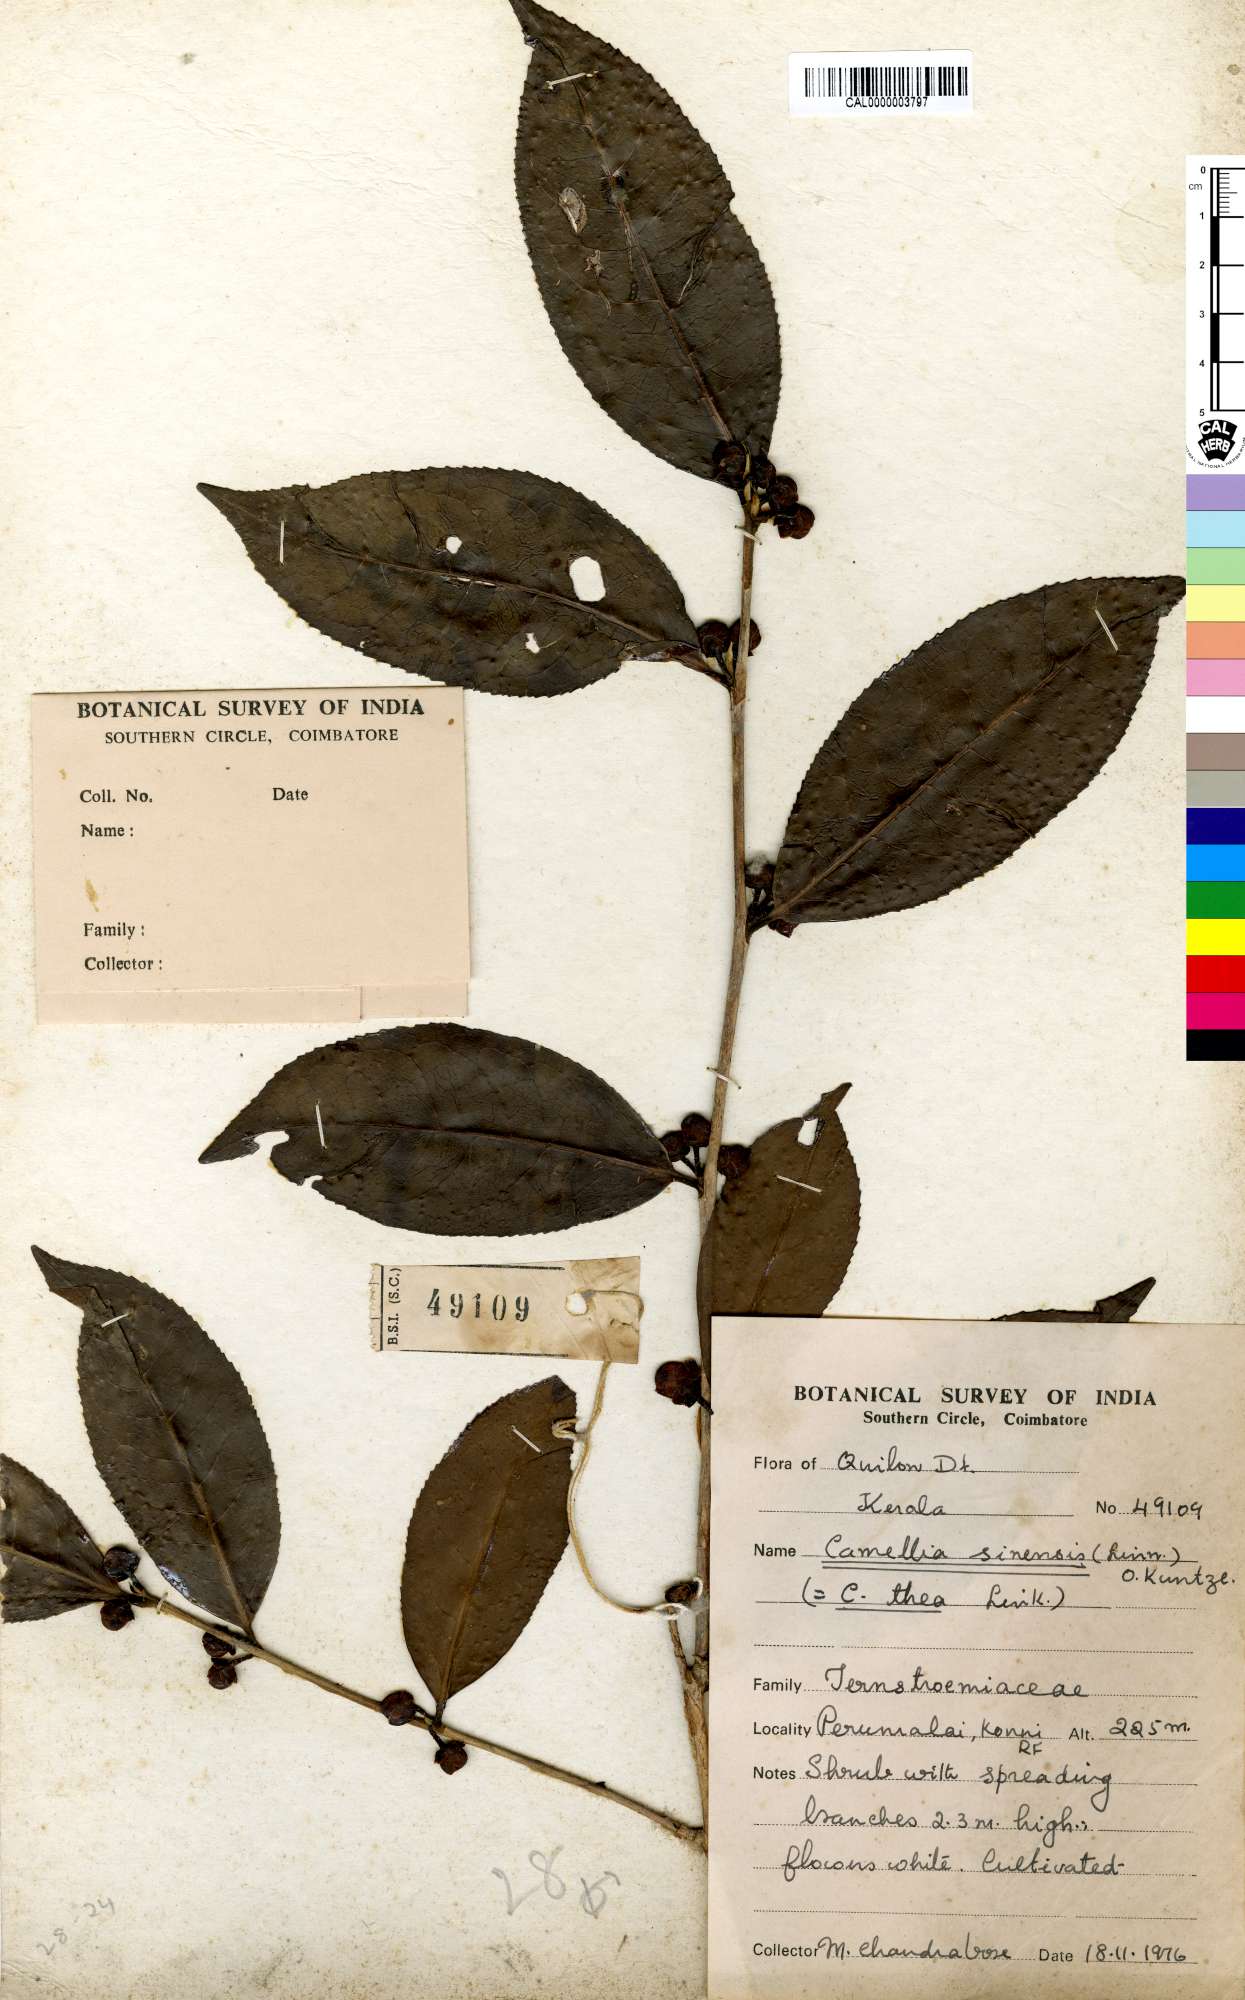 CAL0000003797
0
cm
1
2
3
4
5
CAL
HERB
BOTANICAL SURVEY OF INDIA
SOUTHERN CIRCLE, COIMBATORE
Coll. No. Date
Name :
Family :
Collector :
B.S.I. (S.C.)
49109
BOTANICAL SURVEY OF INDIA
Southern Circle, Coimbatore
Flora of Quilon Dt.
Kerala No 49109
Name Camellia sinensis (Linn.)
O. Kuntze.
(= C. thea Link.)
Family Ternstroemiaceae
Locality Perumalai, Konni Alt. 225 m.
RF
Notes Shrub with spreading
branches 2.3 m. high.,
flowers white. Cultivated
Collector M. Chandrabose Date 18.11.1976
28
28 24